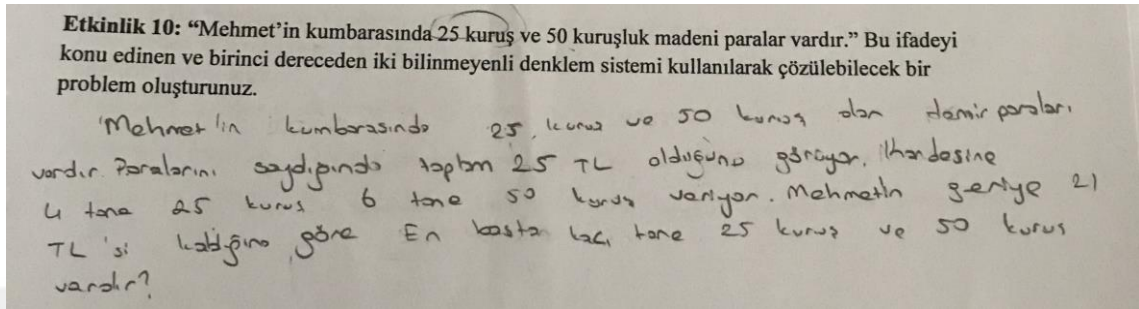 Etkinlik 10: “Mehmet’in kumbarasında 25 kuruş ve 50 kuruşluk madeni paralar vardır.” Bu ifadeyi
konu edinen ve birinci dereceden iki bilinmeyenli denklem sistemi kullanılarak çözülebilecek bir
problem oluşturunuz.
'Mehmet'in kumbarasında 25 kuruş ve 50 kuruş olan demir paraları
vardır. Paralarını saydığında toplam 25 TL olduğunu görüyor.
4 tane 25 kuruş 6 tane 50 kuruş veriyor. Mehmetin geriye 21
TL'si kaldığına göre En başta kaç tane 25 kuruş ve 50 kuruş
vardır?